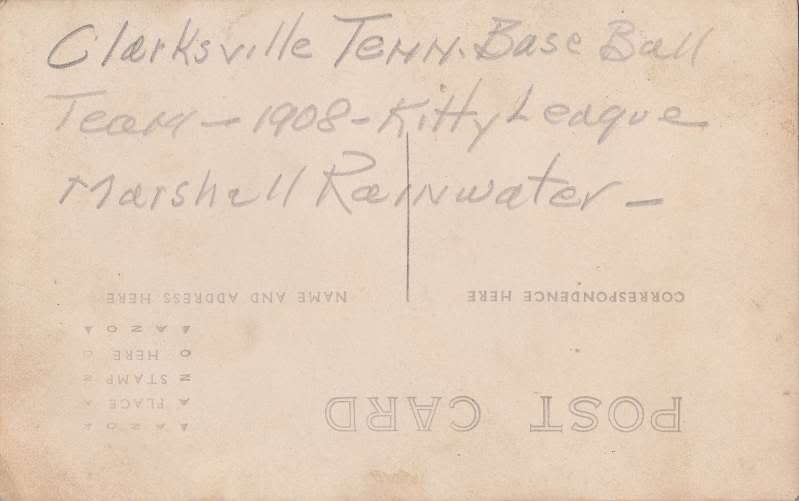 Clarksville Tenn. Base Ball
Team - 1908 - Kitty League
Marshall Rainwater -
CORRESPONDENCE HERE
NAME AND ADDRESS HERE
POST CARD
AZO
PLACE
STAMP
HERE
AZO